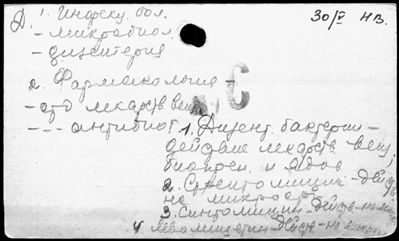 Д. 1. Инфекц. бол. 30/V НВ.
- микробиол.
- дизентерия
2. Фармакология -
- отд лекарств вещ
АС
- - - антибиот 1. Дизент. бактерии -
действие лекарств. вещ,
и ядов
2. Стрептомицин - действ
на микроб
3. Синтомицин - действ - на ми
4. левомицетин - действ - на микро